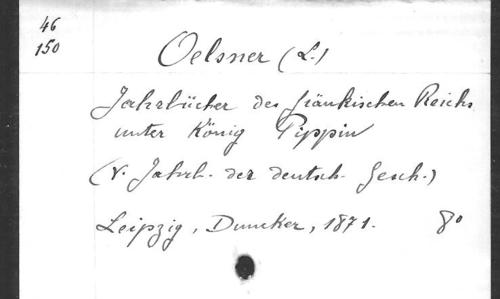 46
150
Oelsner (L.)
Jahrbücher des fränkischen Reichs
unter König Pippin
(v. Jahrb. der deutsch. Gesch.)
Leipzig, Duncker, 1871. 8°